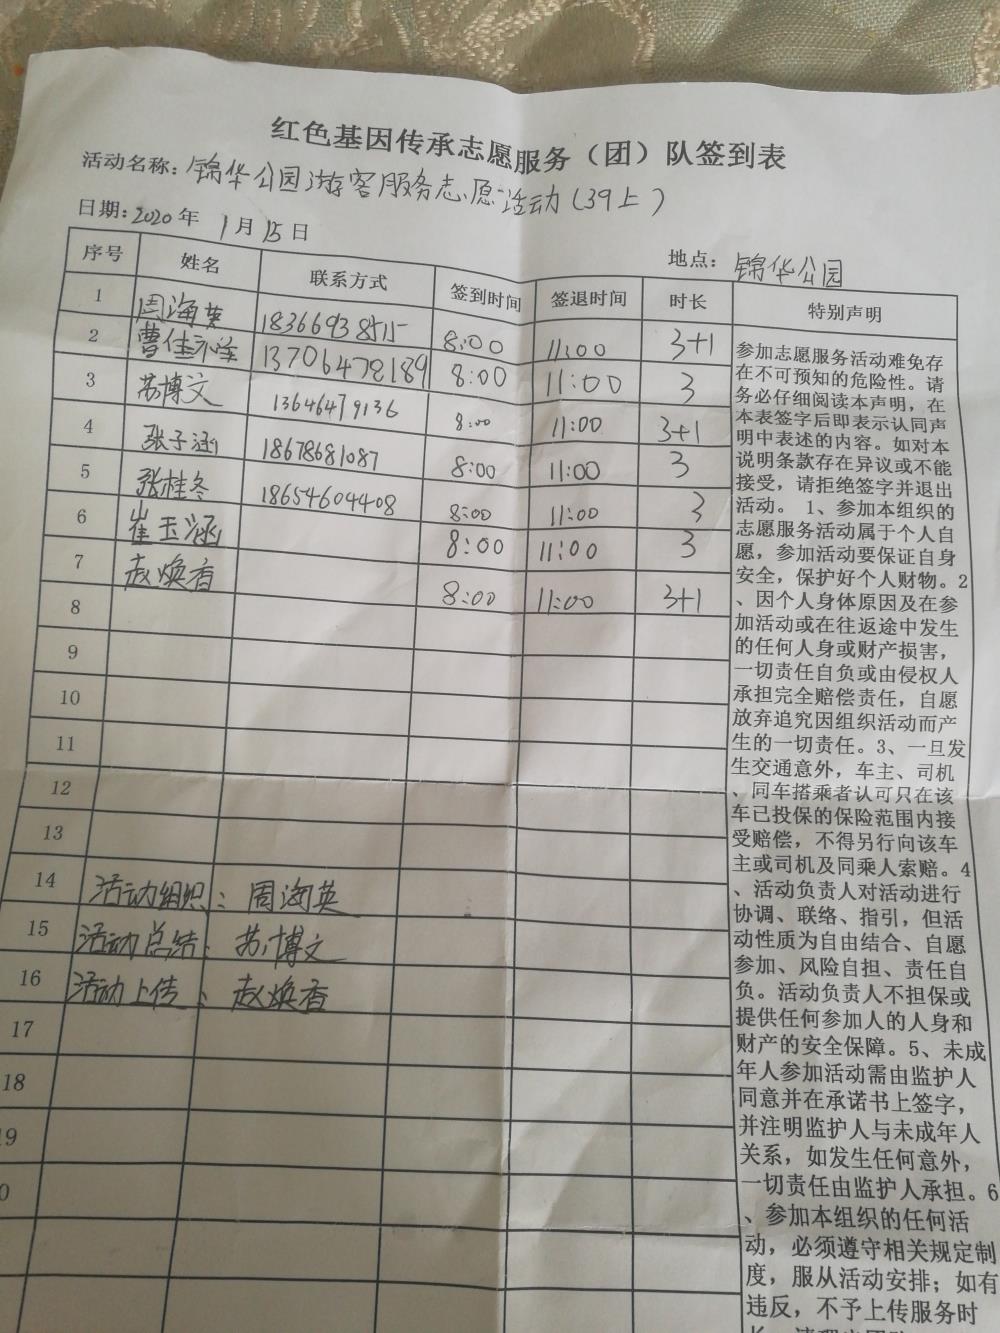 红色基因传承志愿服务（团）队签到表
活动名称：锦华公园游客服务志愿活动（39上）
日期：2020年 1月15日
地点：锦华公园
序号 姓名 联系方式 签到时间 签退时间 时长 特别声明
1 周海英 18366938515 8:00 11:00 3+1
2 曹佳 13706478189 8:00 11:00 3
3 苏博文 13646479136 8:00 11:00 3+1
4 张子涵 18678681087 8:00 11:00 3
5 张桂冬 18654604408 8:00 11:00 3
6 崔玉涵 8:00 11:00 3
7 赵焕香 8:00 11:00 3+1
8
9
10
11
12
13
14 活动组织：周海英
15 活动总结：苏博文
16 活动上传：赵焕香
17
18
19
0
参加志愿服务活动难免存
在不可预知的危险性。请
务必仔细阅读本声明，在
本表签字后即表示认同声
明中表述的内容。如对本
说明条款存在异议或不能
接受，请拒绝签字并退出
活动。 1、参加本组织的
志愿服务活动属于个人自
愿，参加活动要保证自身
安全，保护好个人财物。2
、因个人身体原因及在参
加活动或在往返途中发生
的任何人身或财产损害，
一切责任自负或由侵权人
承担完全赔偿责任，自愿
放弃追究因组织活动而产
生的一切责任。3、一旦发
生交通意外，车主、司机
、同车搭乘者认可只在该
车已投保的保险范围内接
受赔偿，不得另行向该车
主或司机及同乘人索赔。4
、活动负责人对活动进行
协调、联络、指引，但活
动性质为自由结合、自愿
参加、风险自担、责任自
负。活动负责人不担保或
提供任何参加人的人身和
财产的安全保障。5、未成
年人参加活动需由监护人
同意并在承诺书上签字，
并注明监护人与未成年人
关系，如发生任何意外，
一切责任由监护人承担。6
、参加本组织的任何活
动，必须遵守相关规定制
度，服从活动安排；如有
违反，不予上传服务时